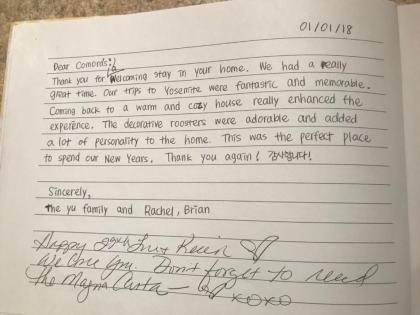 01/01/18
Dear Comords:)
Thank you for a welcoming stay in your home. We had a really
great time. Our trips to Yosemite were fantastic and memorable.
Coming back to a warm and cozy house really enhanced the
experience. The decorative roosters were adorable and added
a lot of personality to the home. This was the perfect place
to spend our New Years. Thank you again! 감사합니다!
Sincerely,
The yu family and Rachel, Brian
Happy
We love you. Don't forget to read
the Magna Carta – XOXO